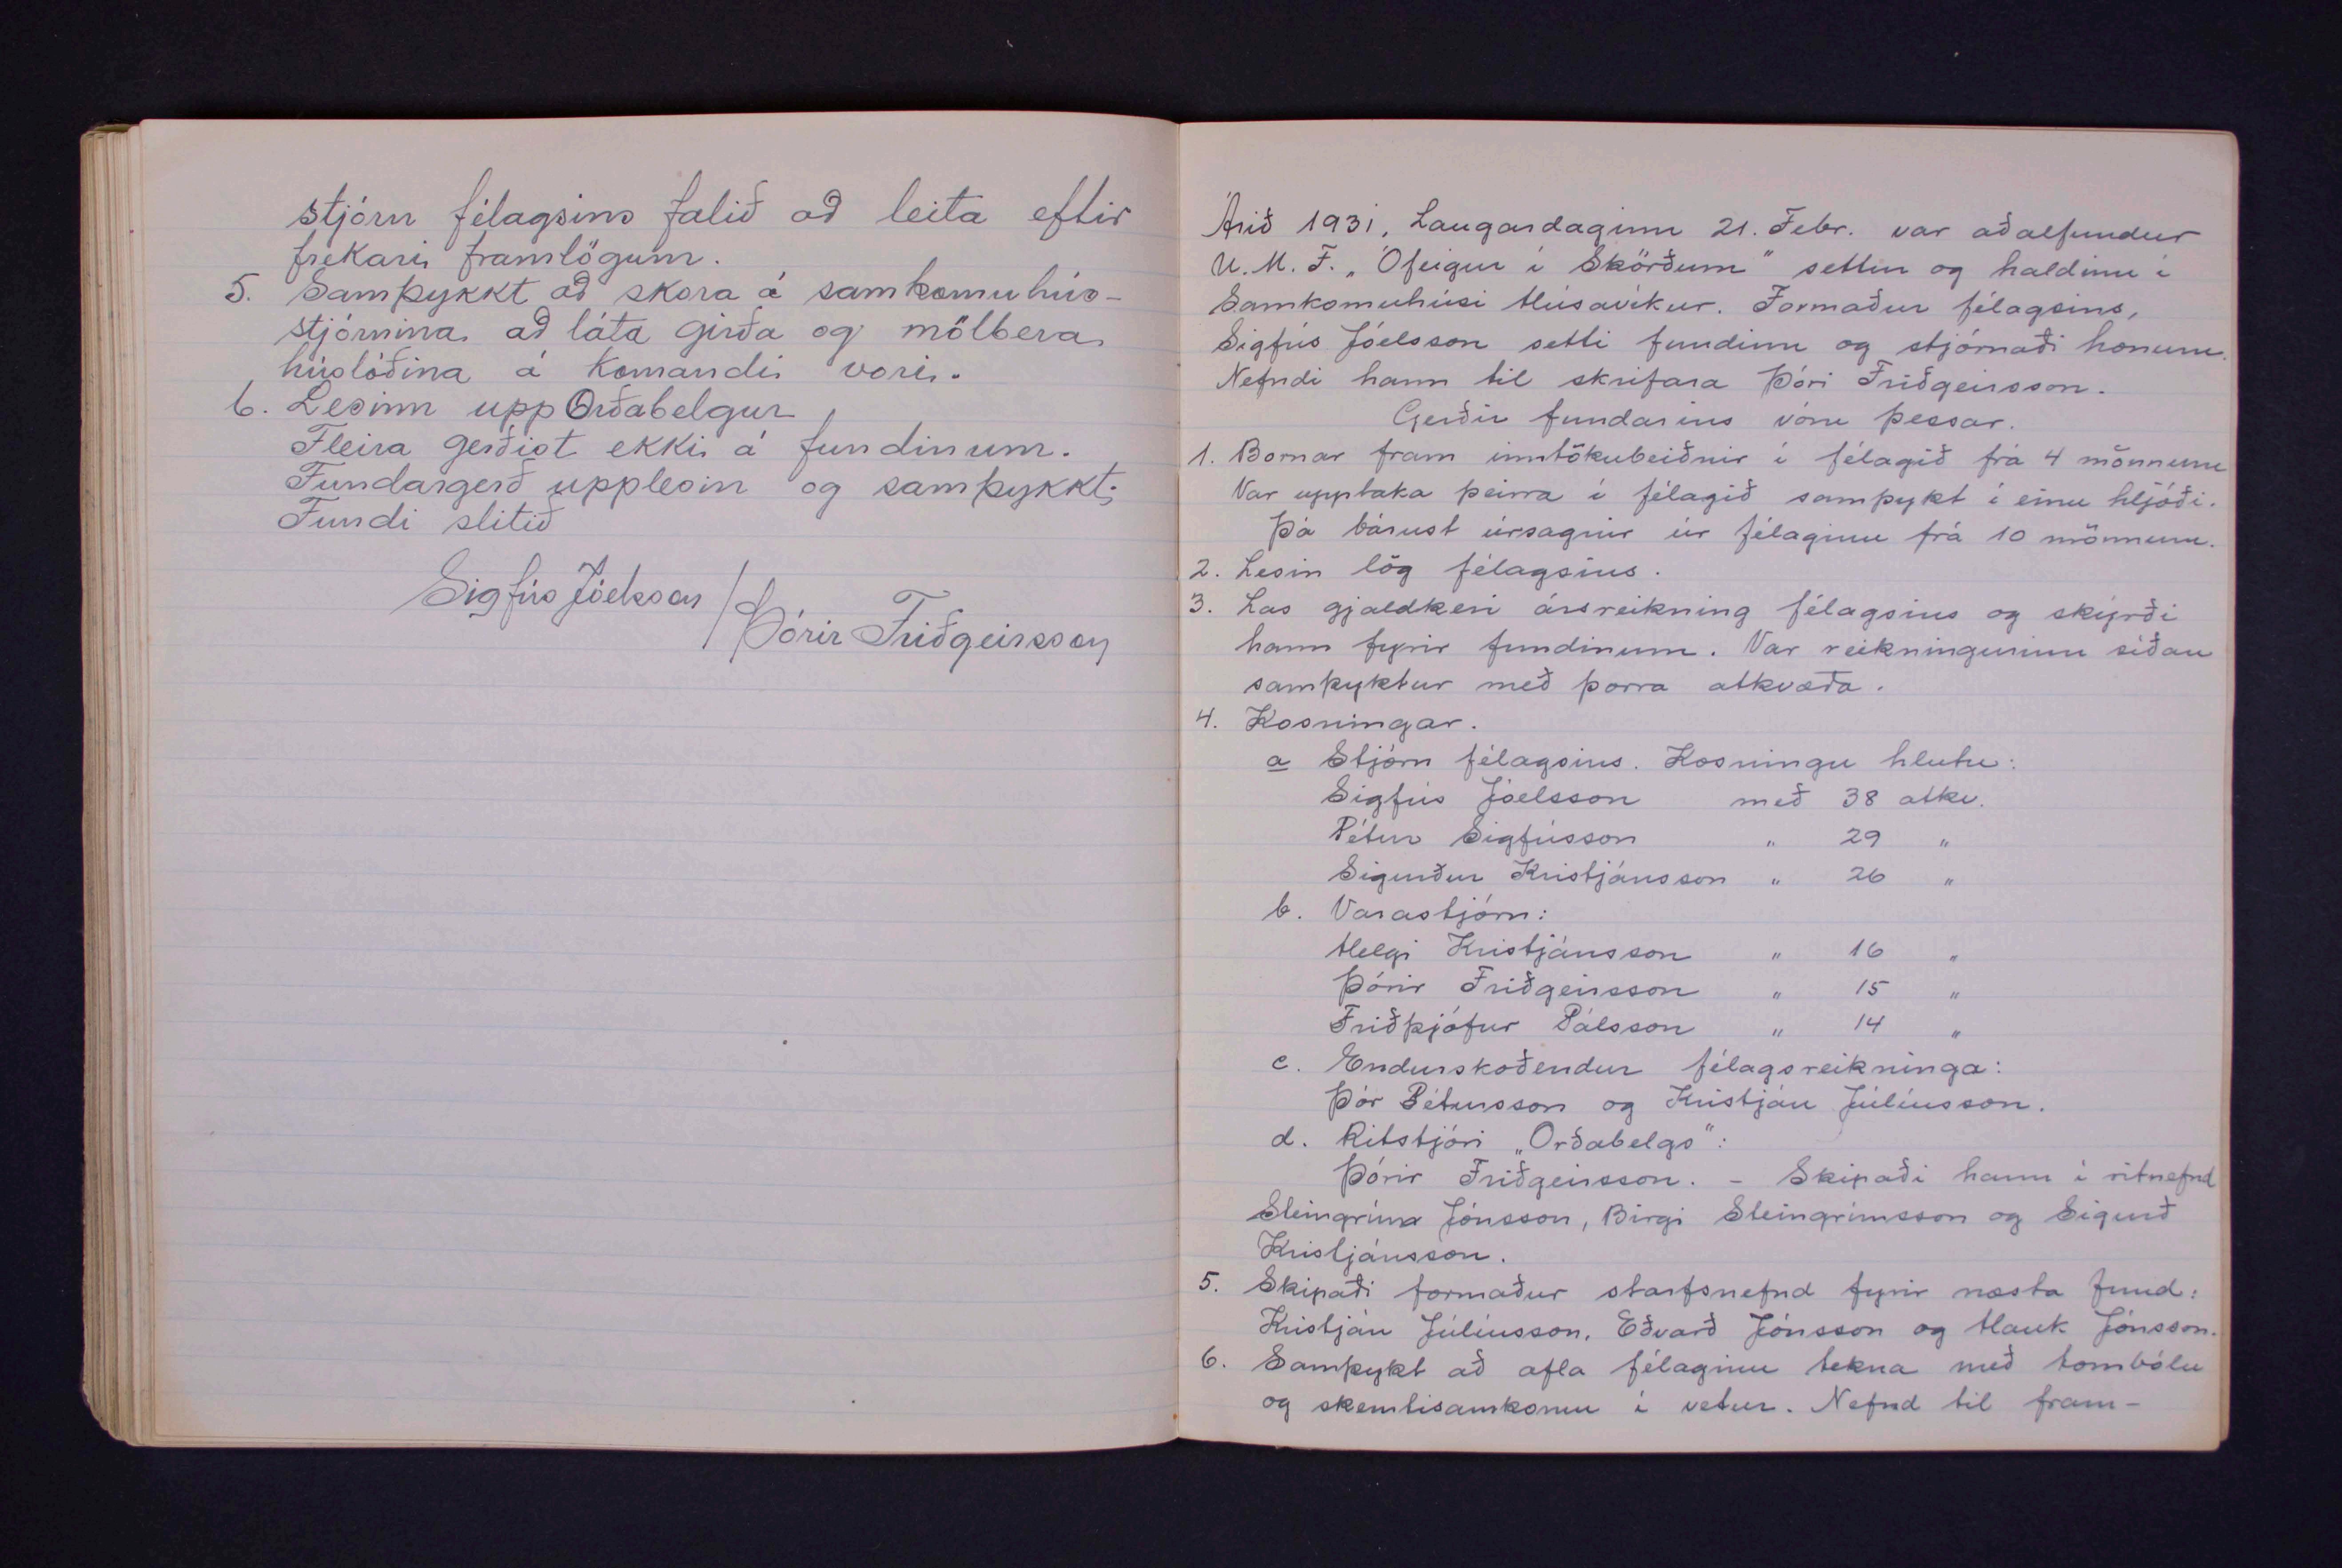 stjórn félagsins falið að leita eftir
frekari framlögum.
5. Samþykkt að skora á samkomuhús-
stjórnina að láta girða og mölbera
húslóðina á komandi vori.
6. Lesinn upp Orðabelgur
Fleira gerðist ekki á fundinum.
Fundargerð upplesin og samþykkt;
Fundi slitið
Sigfús Jóelsson / Þórir Friðgeirsson
Árið 1931, Laugardaginn 21. Febr. var aðalfundur
U.M.F. „Ófeigur í Skörðum" settur og haldinn í
Samkomuhúsi Húsavíkur. Formaður félagsins,
Sigfús Jóelsson setti fundinn og stjórnaði honum.
Nefndi hann til skrifara Þóri Friðgeirsson.
Gerðir fundarins vóru þessar.
1. Bornar fram inntökubeiðnir í félagið frá 4 mönnum
Var upptaka þeirra í félagið samþykt í einu hljóði.
Þá bárust úrsagnir úr félaginu frá 10 mönnum.
2. Lesin lög félagsins.
3. Las gjaldkeri ársreikning félagsins og skýrði
hann fyrir fundinum. Var reikningurinn síðan
samþyktur með þorra atkvæða.
4. Kosningar.
a Stjórn félagsins. Kosningu hlutu:
Sigfús Jóelsson með 38 atkv.
Pétur Sigfússon " 29 "
Sigurður Kristjánsson " 26 "
b. Varastjórn:
Helgi Kristjánsson " 16 "
Þórir Friðgeirsson " 15 "
Friðþjófur Pálsson " 14 "
c. Endurskoðendur félagsreikninga:
Þór Pétursson og Kristján Júlíusson.
d. Ritstjóri „Orðabelgs":
Þórir Friðgeirsson. - Skipaði hann í ritnefnd
Steingrím Jónsson, Birgi Steingrímsson og Sigurð
Kristjánsson.
5. Skipaði formaður starfsnefnd fyrir næsta fund:
Kristján Júlíusson, Eðvarð Jónsson og Hauk Jónsson.
6. Samþykt að afla félaginu tekna með tombólu
og skemtisamkomu í vetur. Nefnd til fram-